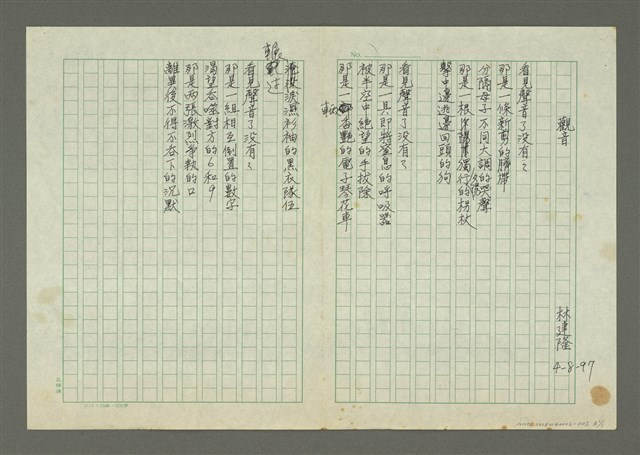 觀音
林建隆
4-8-97
看見聲音了沒有？
那是一條新剪的臍帶
分隔母子不同大調的哭聲
那是一根獨行的拐杖
擊中邊逃邊回頭的狗
看見聲音了沒有？
那是一具即將窒息的呼吸器
被半空中絕望的手拔除
那是一輛香艷的電子琴花車
輾過淹沒淚濕衫袖的黑衣隊伍
看見聲音了沒有？
那是一組相互倒置的數字
渴望吞噬對方的6和9
那是兩張激烈爭執的口
離異後不得不吞下的沉默
No.